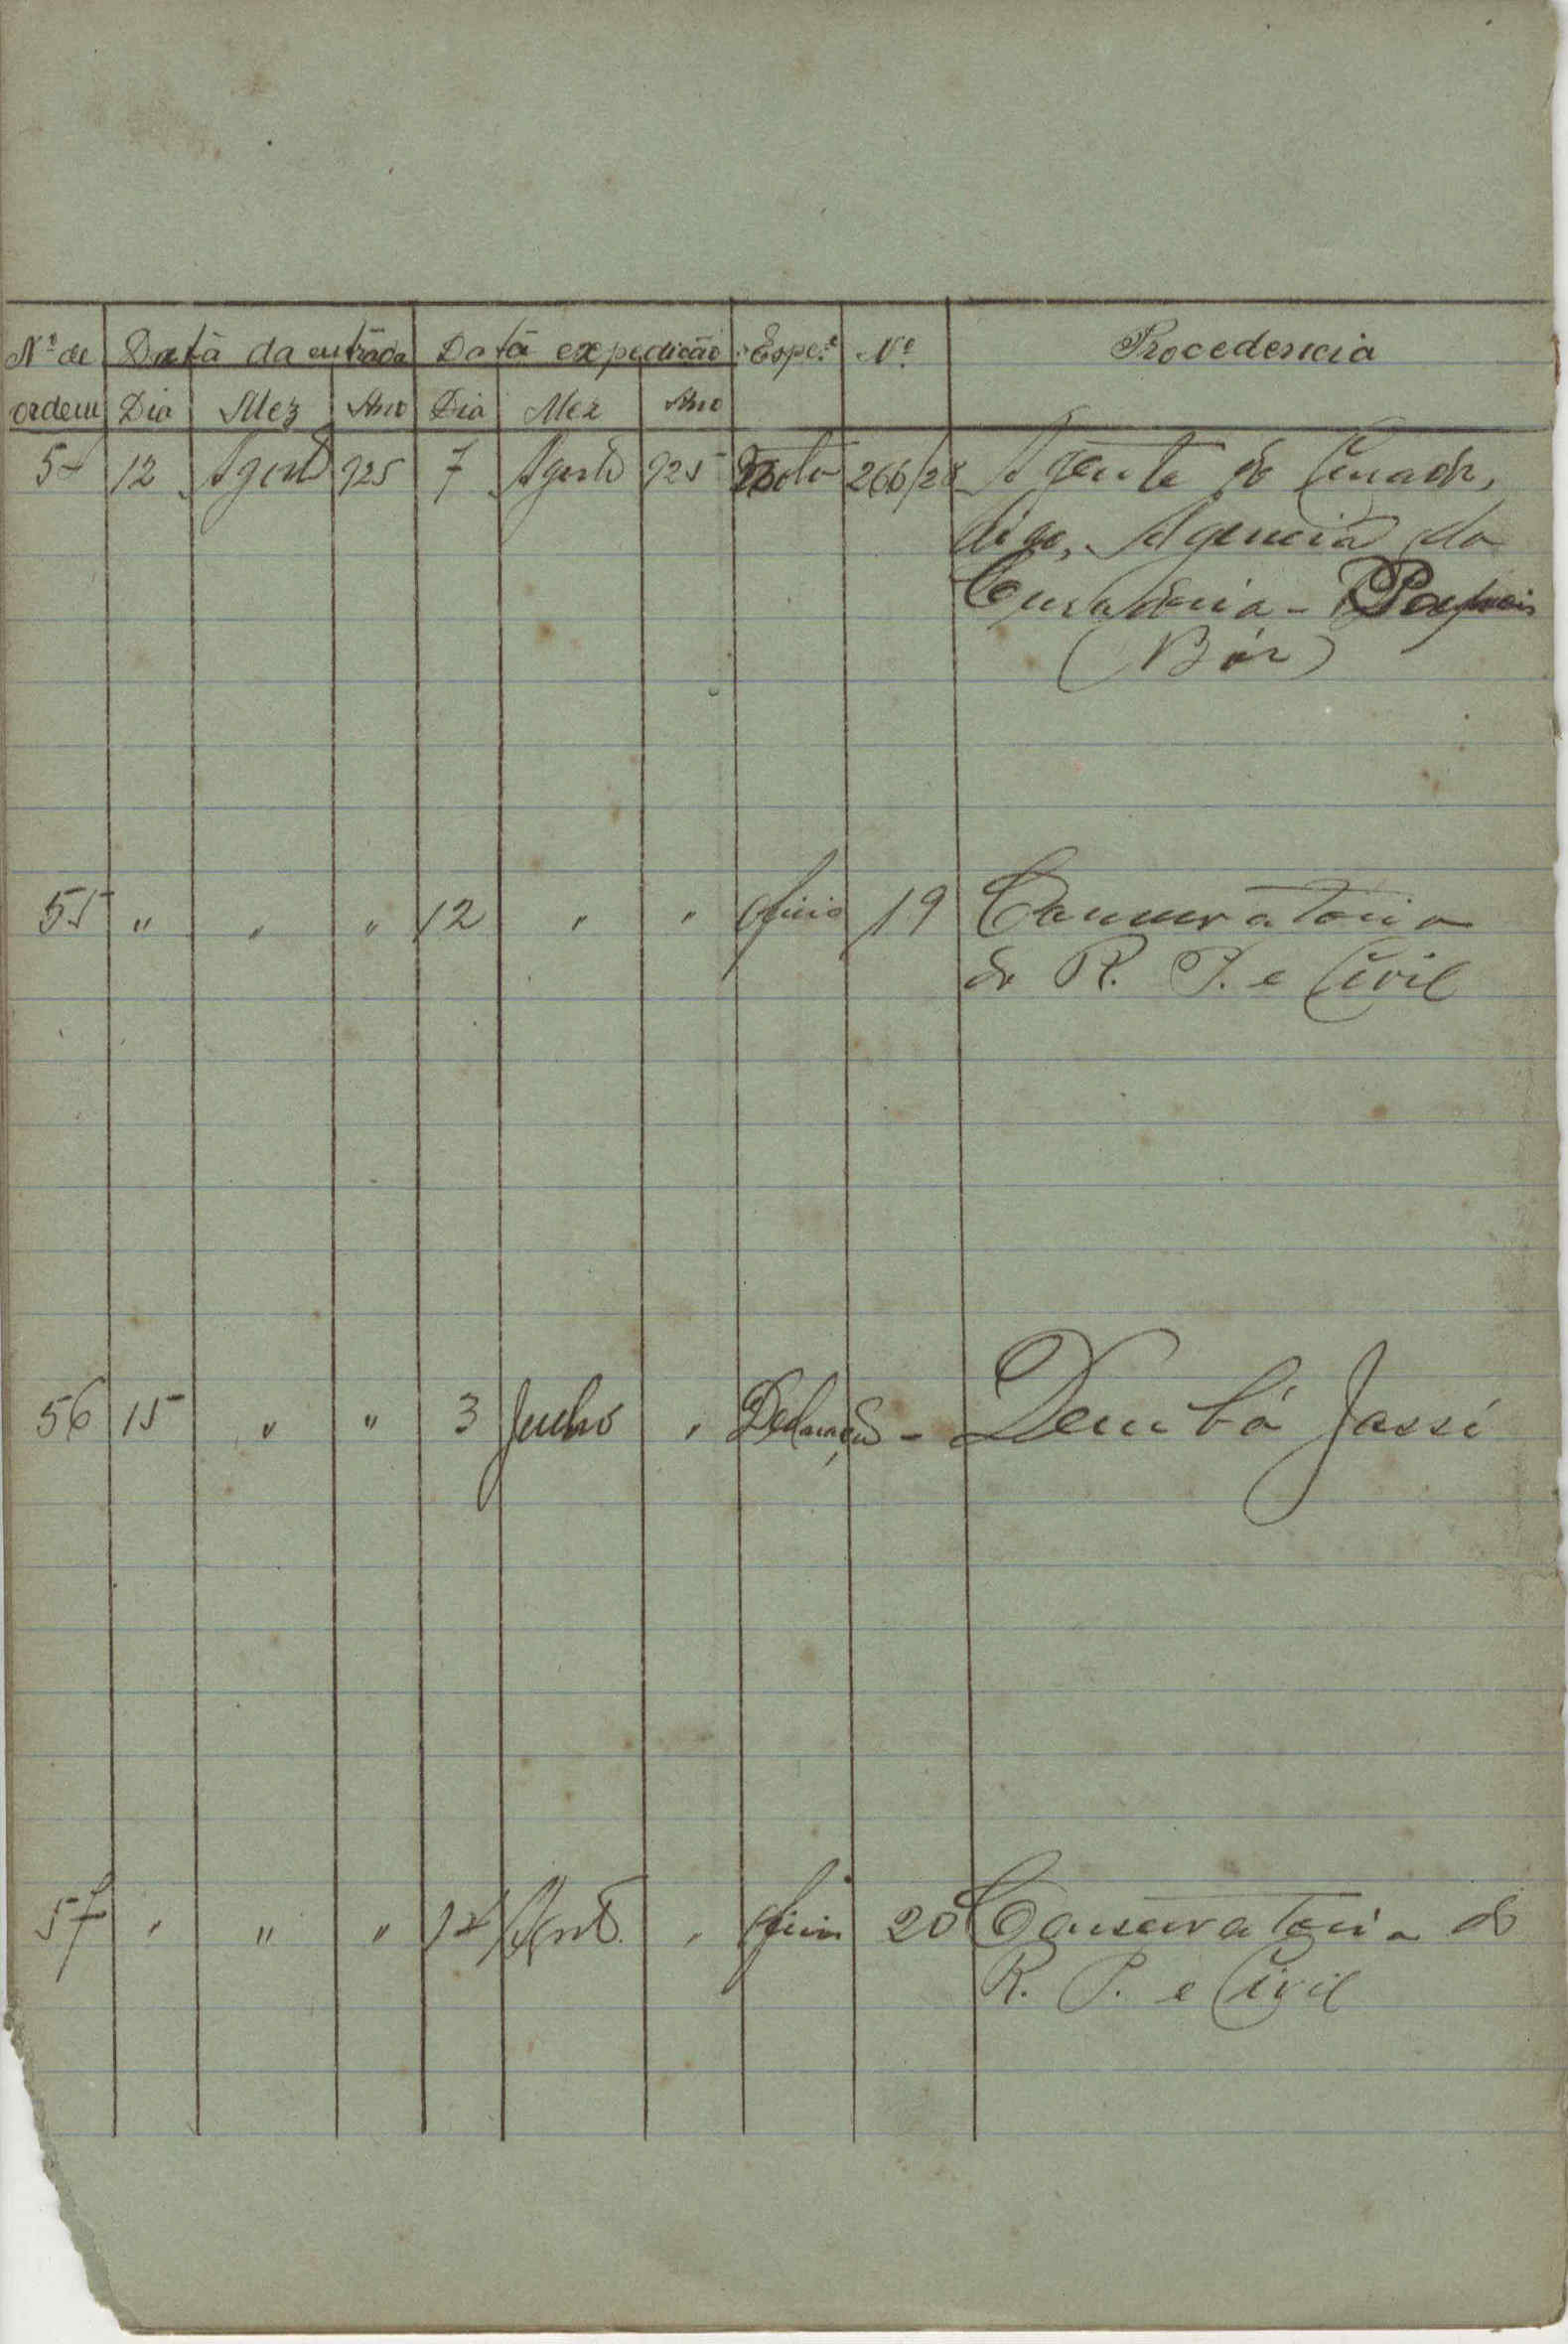 Nº de Data da entrada Data expedicão Espe.e Nº Procedencia
ordem Dia Mez Ano Dia Mez Ano
54 12 Agosto 925 7 Agosto 925 Nota 266/28 Agente do Curador,
digo, Agencia da
Curadoria - Papeis
(Bór)
55 " " " 12 " " Oficio 19 Conservatoria
do R. P. e Civil
56 15 " " 3 Junho " Declaração - Dembó Jassi
57 " " " 12 Agosto " Oficio 20 Conservatoria do
R. P. e Civil